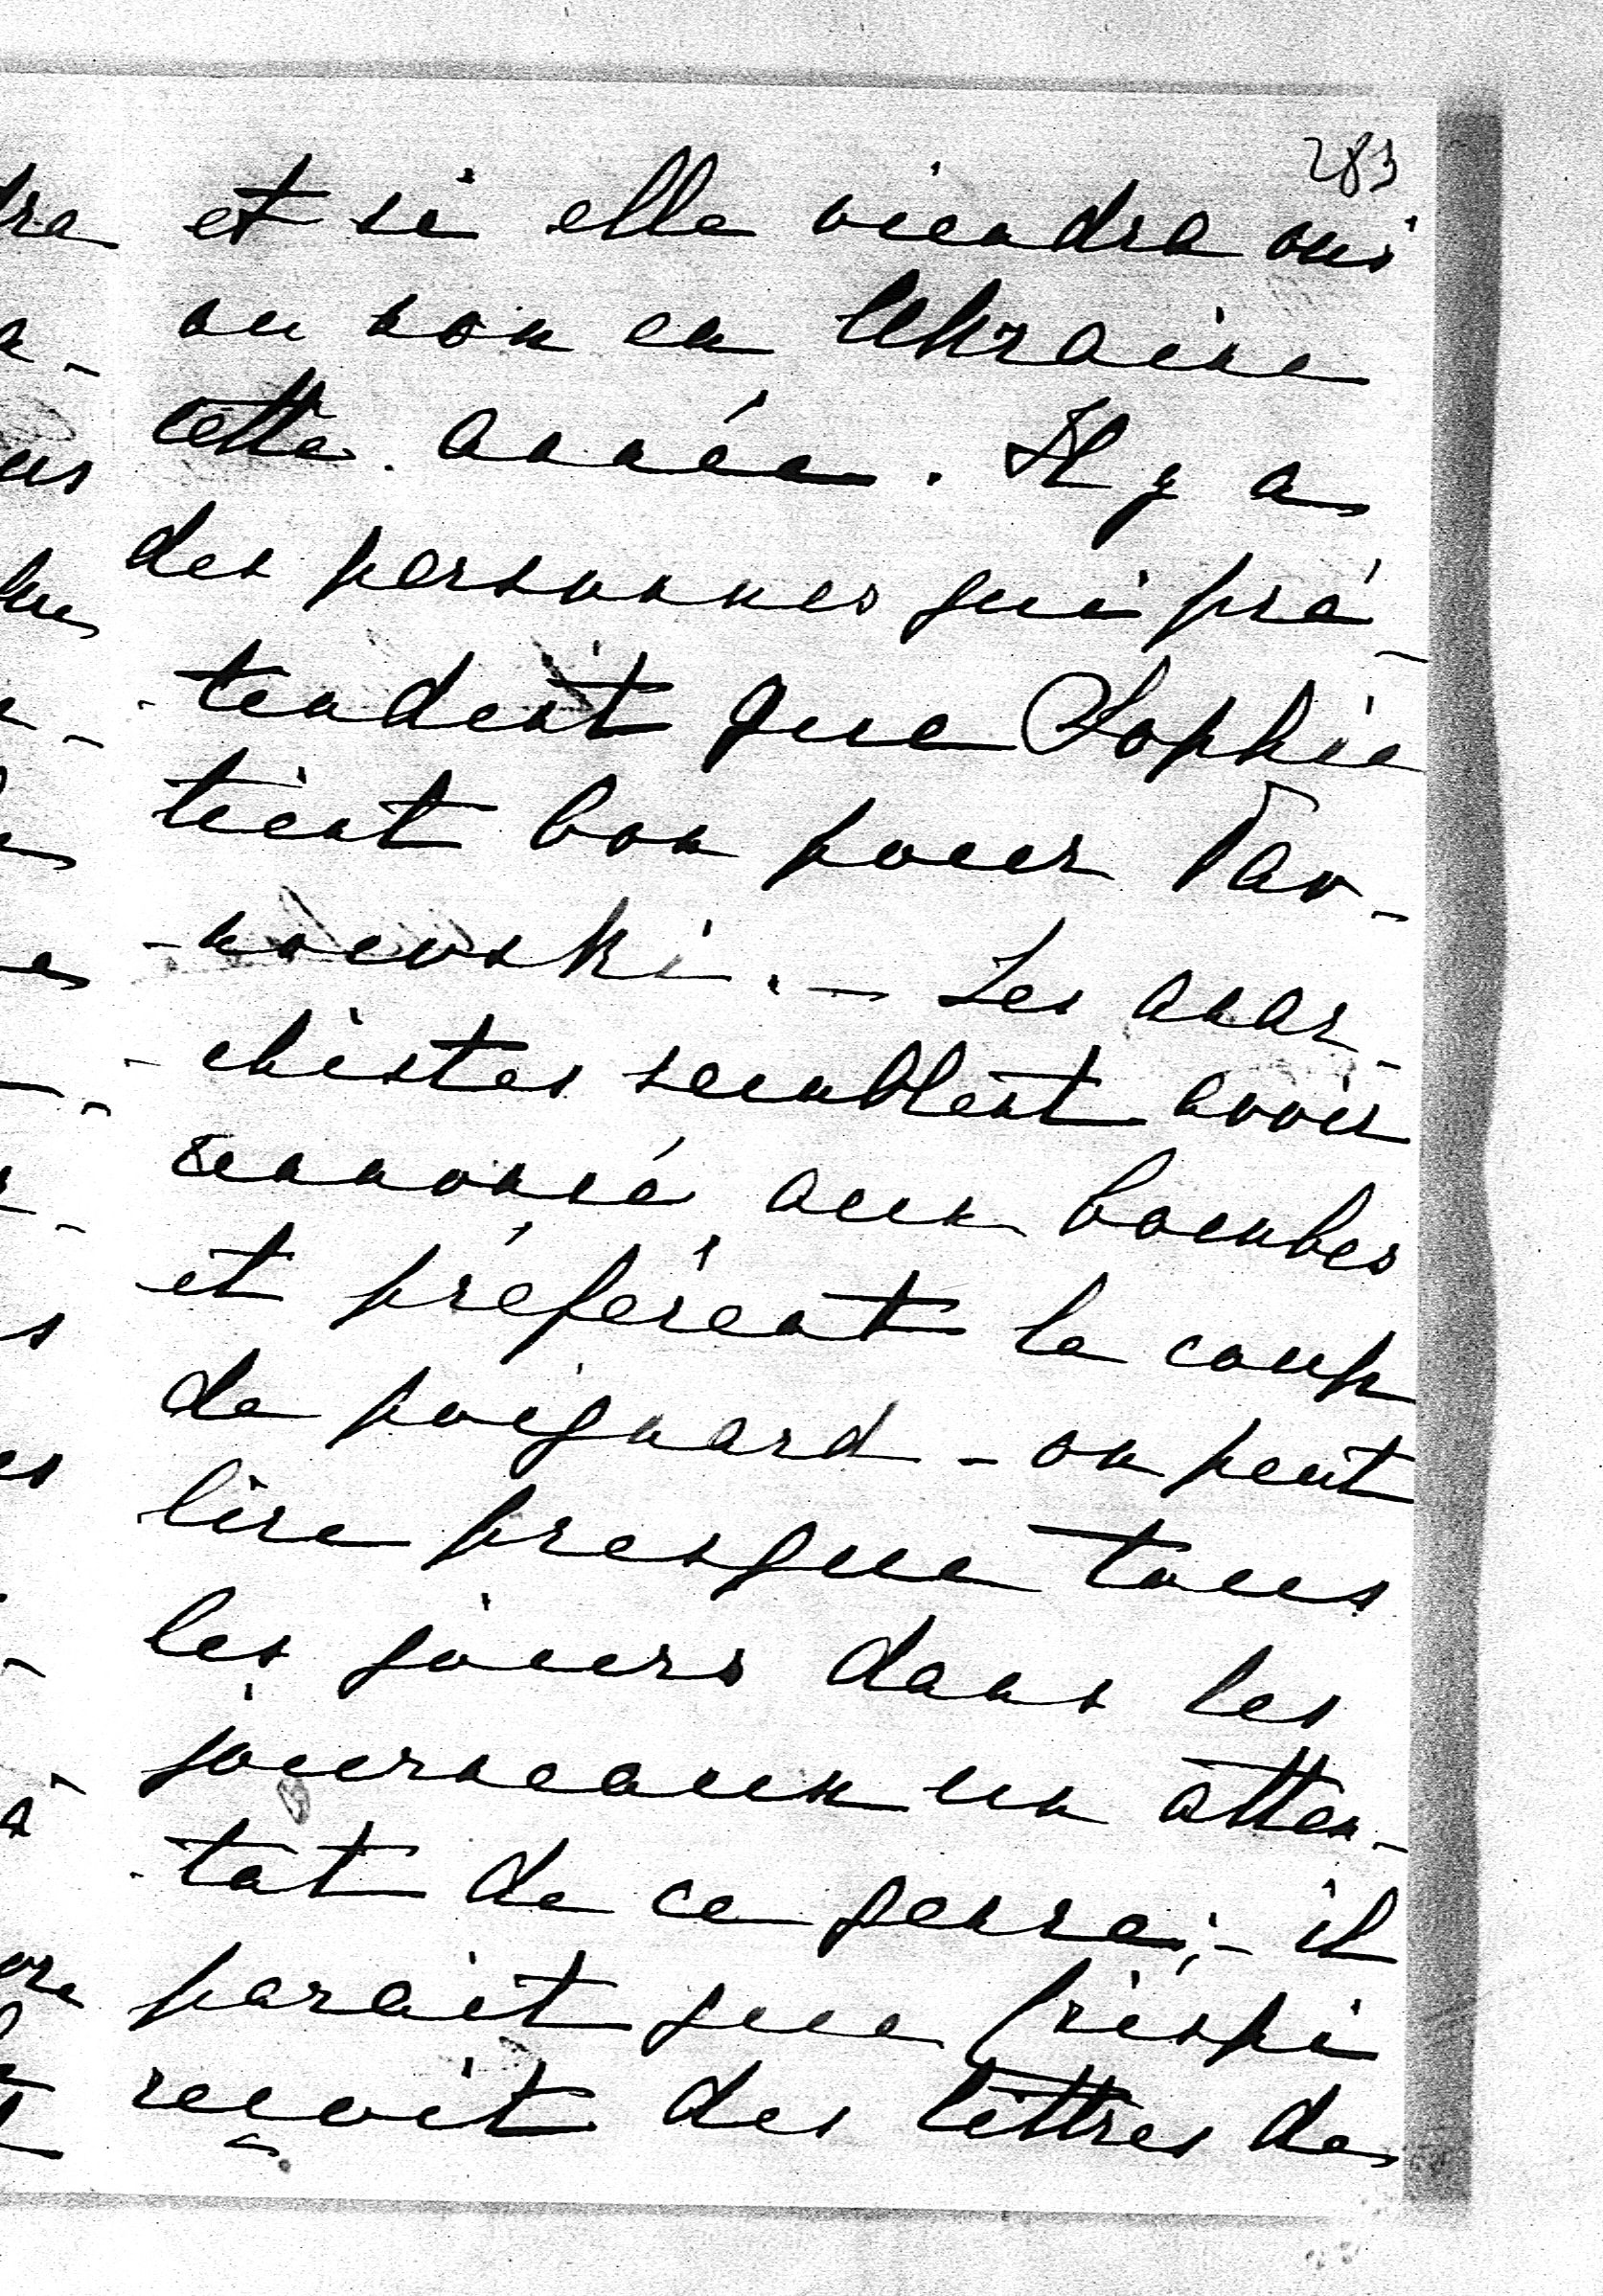 283
et si elle viendra oui
ou non en Ukraine
cette année. Il y a
des personnes qui pré-
-tendent que Sophie
tient bon pour Tar-
-nowski. - Les anar-
-chistes semblent avoir
renoncé aux bombes
et préfèrent le coup
de poignard - on peut
lire presque tous
les jours dans les
journaux un atten-
-tat de ce genre; - il
parait que Crispi
reçoit des lettres de